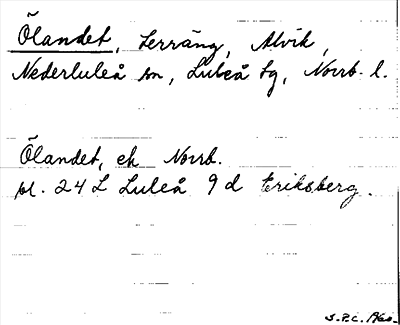 Ölandet, terräng, Alvik,
Nederluleå sn, Luleå tg, Norrb. l.
Ölandet, ek Norrb.
bl. 24 L Luleå 9 d Eriksberg.
S.P.C.